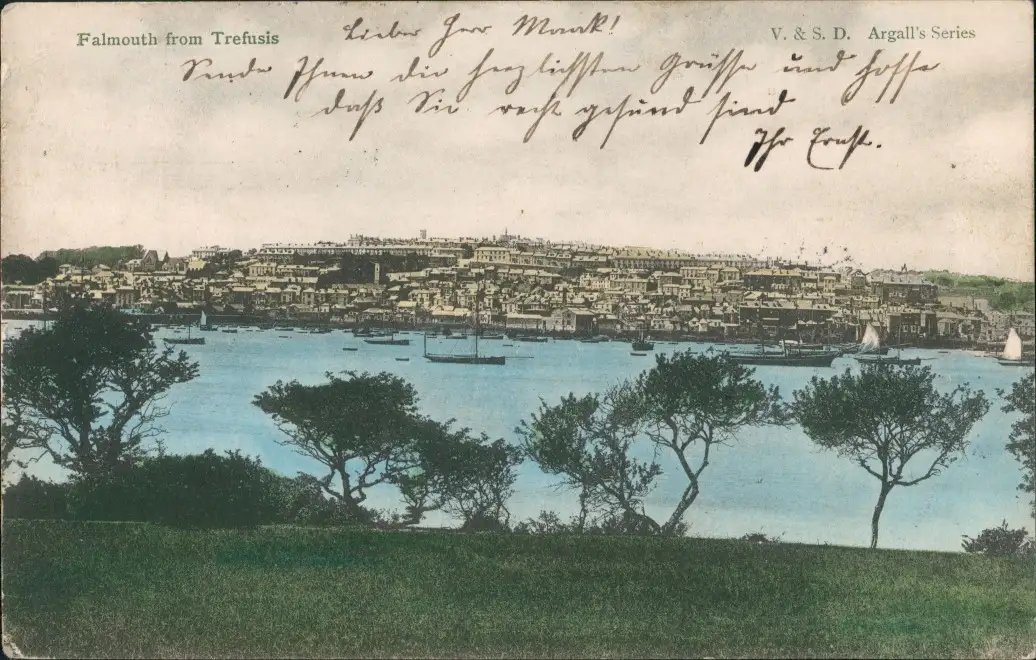 Falmouth from Trefusis
V. & S. D. Argall's Series
Lieber Herr Maack!
Sende Ihnen die herzlichsten Grüsse und hoffe
daß Sie recht gesund sind
Ihr Ernst.